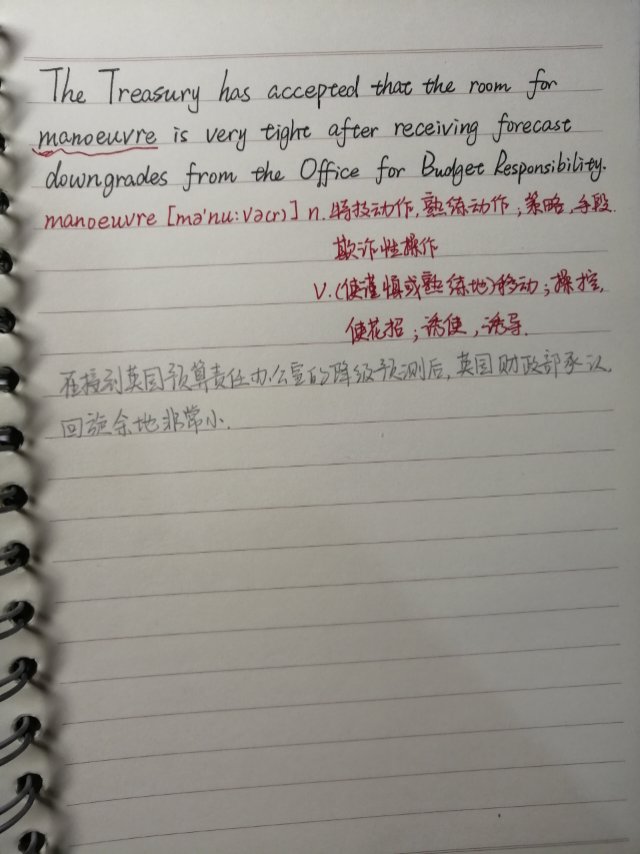 The Treasury has accepted that the room for
manoeuvre is very tight after receiving forecast
downgrades from the Office for Budget Responsibility.
manoeuvre [mə'nu:və(r)] n. 特技动作,熟练动作;策略,手段.
欺诈性操作
v.(使谨慎或熟练地)移动;操控,
使花招;诱使,诱导.
在接到英国预算责任办公室的降级预测后,英国财政部承认,
回旋余地非常小.